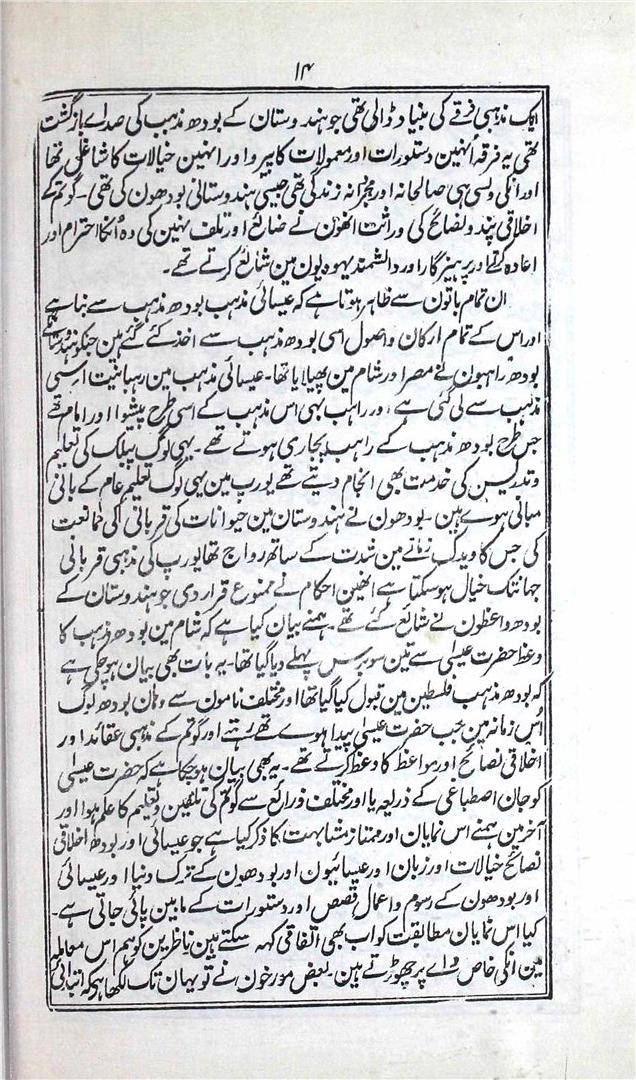 ۱۴
ایک مذہبی فرقے کی بنیاد ڈالی تھی جو ہندوستان کے بودھ مذہب کی صداے بازگشت
تھی یہ فرقہ انہین دستورات اور معمولات کا پیرو اور انہین خیالات کا شاغل تھا
اور انکی ویسی ہی صالحانہ اور مجردانہ زندگی تھی جیسی ہندوستانی بودھون کی تھی۔ گوتم کے
اخلاقی پند و نصائح کی وراثت انھون نے ضائع اور تلف نہین کی وہ انکا احترام اور
اعادہ کرتے اور پرہیزگار اور دانشمند یہودیون مین شائع کرتے تھے۔
ان تمام باتون سے ظاہر ہوتا ہے کہ عیسائی مذہب بودھ مذہب سے بنا ہے
اور اس کے تمام ارکان و اصول اسی بودھ مذہب سے اخذ کئے گئے ہین جنکو ہندوستان کے
بودھ راہبون نے مصر اور شام مین پھیلایا تھا۔ عیسائی مذہب مین رہبانیت اسی
مذہب سے لی گئی ہے اور راہب بھی اس مذہب کے اسی طرح پیشوا اور امام تھے
جس طرح بودھ مذہب کے راہب پجاری ہوتے تھے۔ یہی لوگ پبلک کی تعلیم
و تدریس کی خدمت بھی انجام دیتے تھے یورپ مین یہی لوگ تعلیم عام کے بانی
مبانی ہوے ہین۔ بودھون نے ہندوستان مین حیوانات کی قربانی کی ممانعت
کی جس کا ویدک زمانے مین شدت کے ساتھ رواج تھا یورپ کی مذہبی قربانی
جہانتک خیال ہوسکتا ہے انھین احکام نے ممنوع قرار دی جو ہندوستان کے
بودھ واعظون نے شائع کئے تھے۔ ہمنے بیان کیا ہے کہ شام مین بودھ مذہب کا
وعظ حضرت عیسیٰ سے تین سو برس پہلے دیا گیا تھا۔ یہ بات بھی بیان ہوچکی ہے
کہ بودھ مذہب فلسطین مین قبول کیا گیا تھا اور مختلف نامون سے وہان بودھ لوگ
اُس زمانہ مین جب حضرت عیسیٰ پیدا ہوے تھے رہتے اور گوتم کے مذہبی عقائد اور
اخلاقی نصائح اور مواعظ کا وعظ کرتے تھے۔ یہ بھی بیان ہوچکا ہے کہ حضرت عیسیٰ
کو جان اصطباغی کے ذریعہ یا اور مختلف ذرائع سے گوتم کی تلقین و تعلیم کا علم ہوا اور
آخر مین ہمنے اس نمایان اور ممتاز مشابہت کا ذکر کیا ہے جو عیسائی اور بودھ اخلاقی
نصائح خیالات اور زبان اور عیسائیون اور بودھون کے ترک دنیا اور عیسائی
اور بودھون کے رسوم و اعمال قصص اور دستورات کے مابین پائی جاتی ہے۔
کیا اس نمایان مطابقت کو اب بھی اتفاقی کہہ سکتے ہین ناظرین کو ہم اس معاملہ
مین انکی خاص راے پر چھوڑتے ہین۔ بعض مورخون نے تو یہان تک لکھا ہی کہ ابتدائی